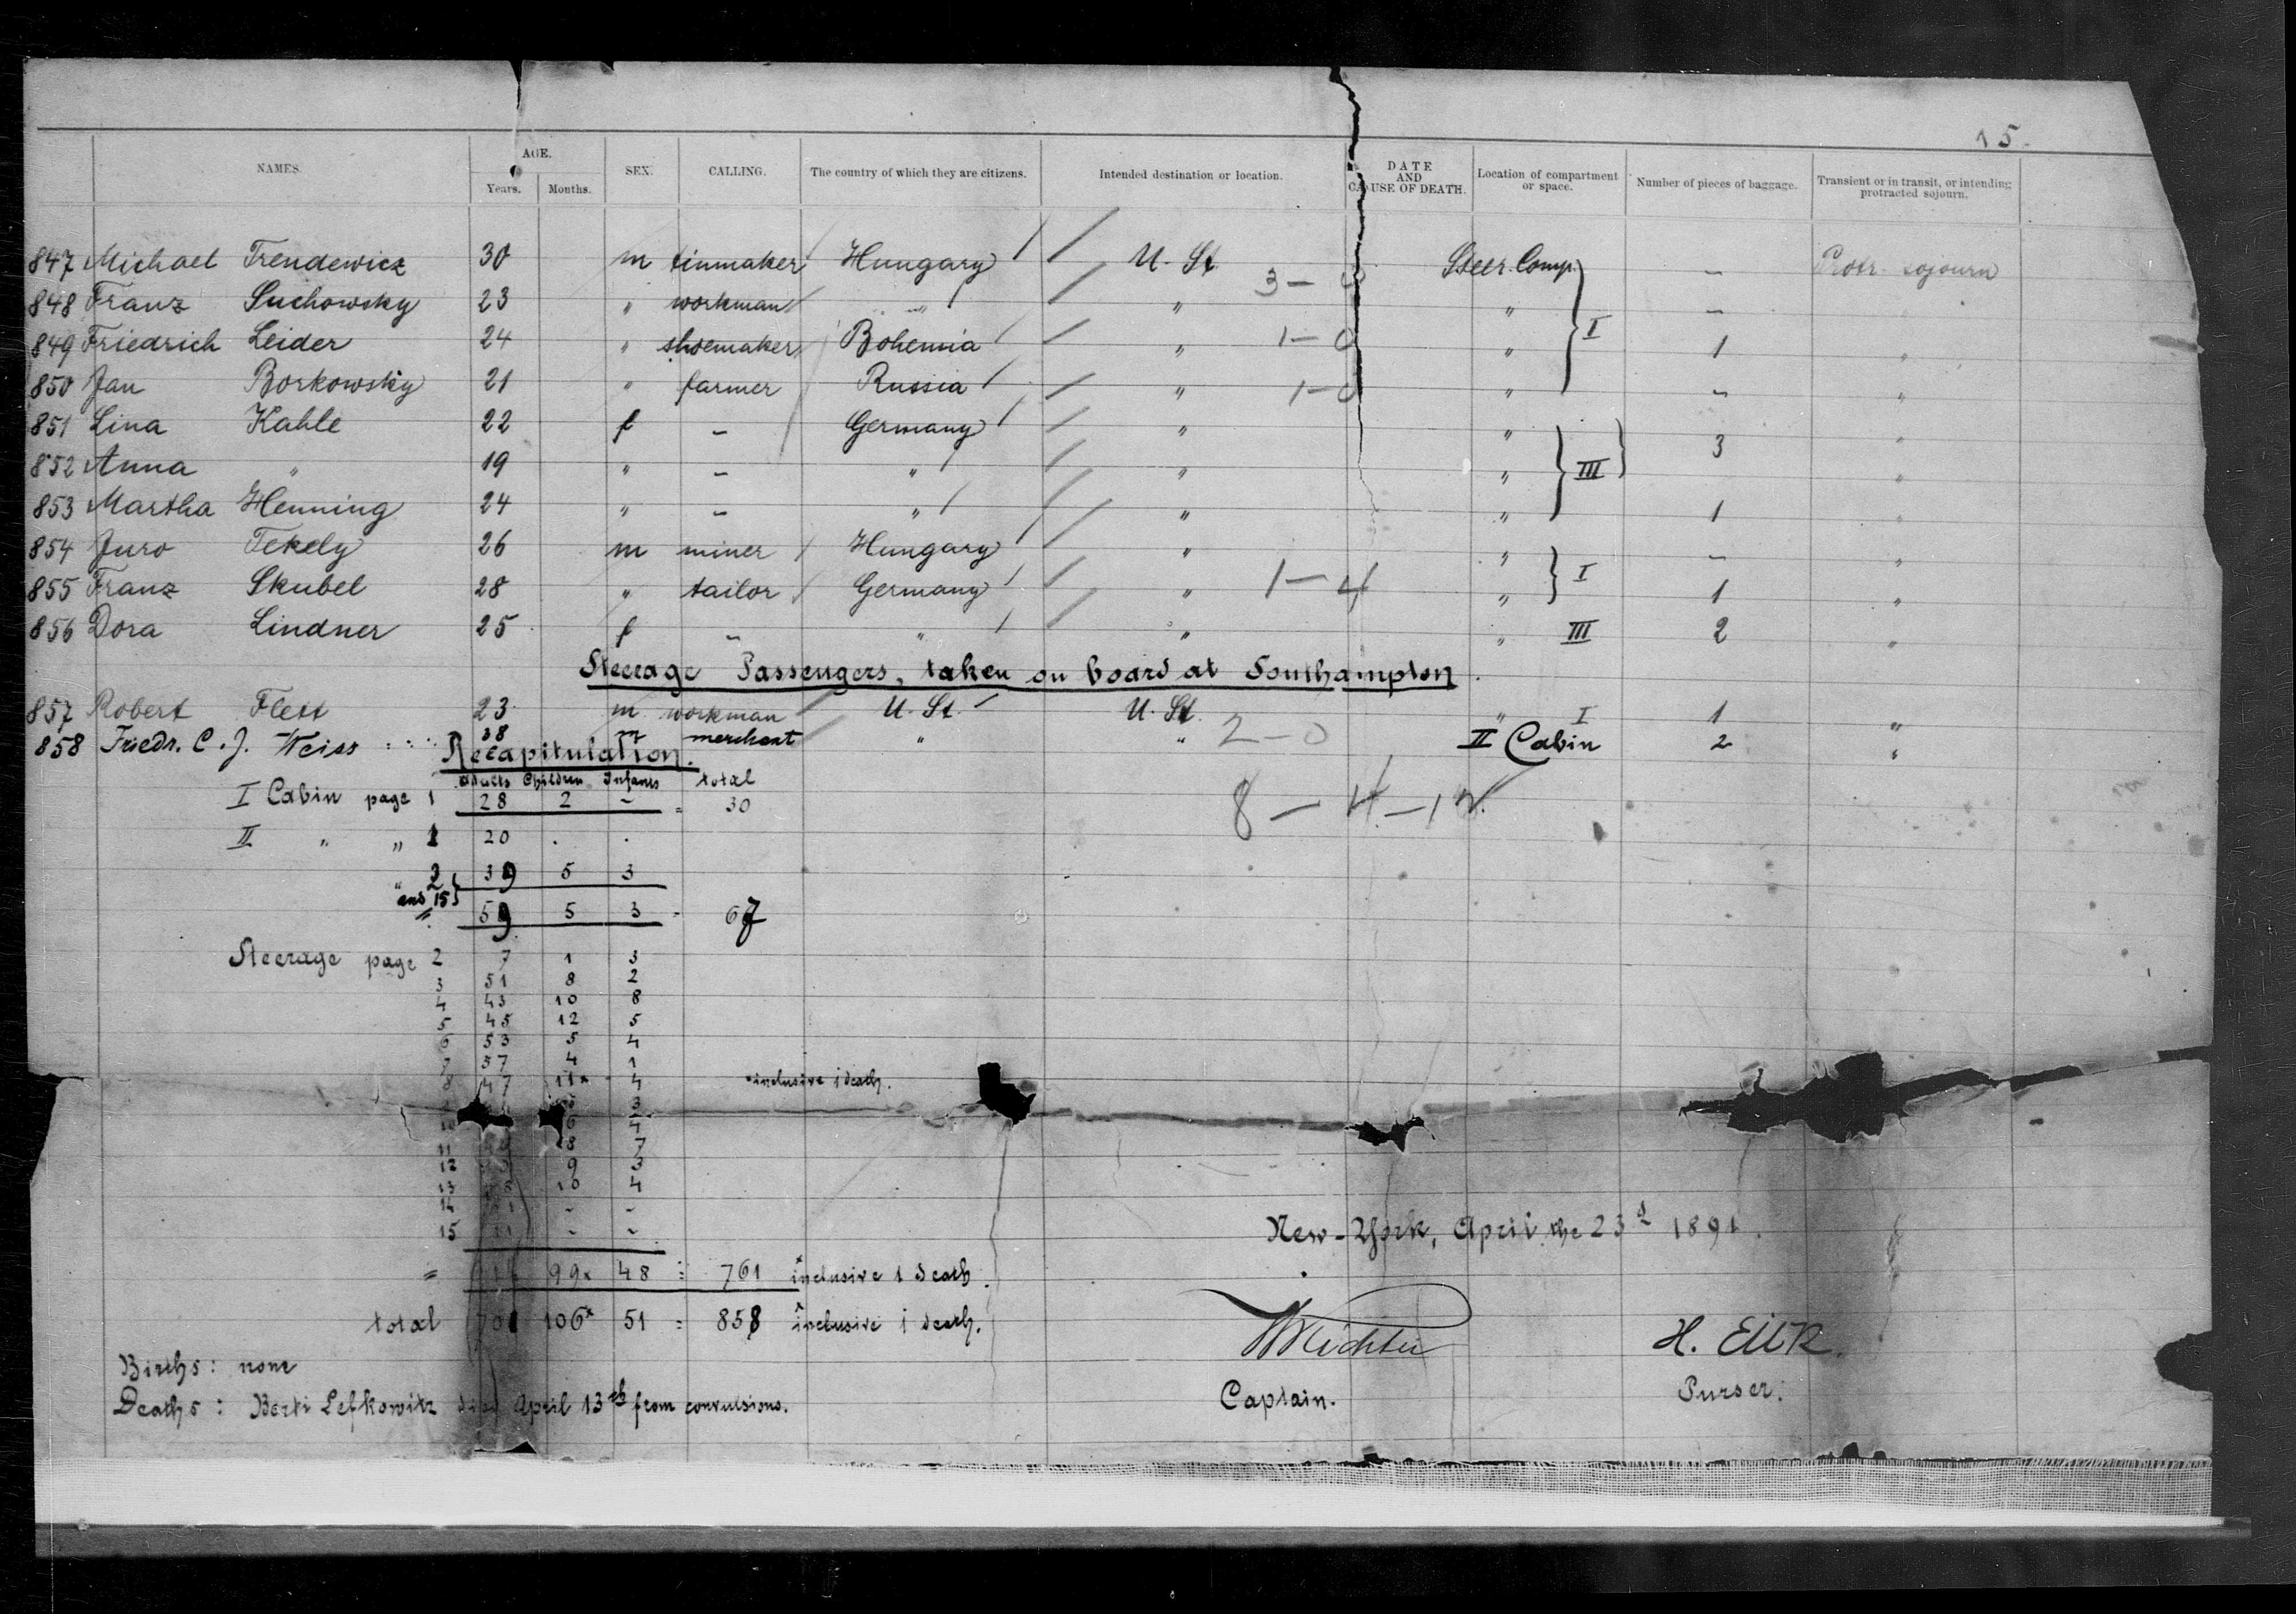 15.
NAMES. AGE. Years. Months. SEX. CALLING. The country of which they are citizens. Intended destination or location. DATE AND CAUSE OF DEATH. Location of compartment or space. Number of pieces of baggage. Transient or in transit, or intending protracted sojourn.
847 Michael Trendewicz 30 m tinmaker Hungary U. St. Steer. Comp. – Protr. sojourn
3 – 0
848 Franz Suchowsky 23 " workman " " " –
849 Friedrich Leider 24 " shoemaker Bohemia " 1 – 0 " I 1 "
850 Jan Borkowsky 21 " farmer Russia " 1 – 0 " – "
851 Lina Kahle 22 f – Germany " " 3 "
852 Anna " 19 " – " " " III "
853 Martha Henning 24 " – " " " 1 "
854 Juro Tekely 26 m miner Hungary " " – "
855 Franz Skubel 28 " tailor Germany " 1 – 4 " I 1 "
856 Dora Lindner 25 f – " " " III 2 "
Steerage Passengers, taken on board at Southampton.
857 Robert Flett 23 m workman U. St. U. St. " I 1 "
858 Friedr. C. J. Weiss 38 m merchant " " 2 – 0 II Cabin 2 "
Recapitulation.
Adults Children Infants total
I Cabin page 1 28 2 – = 30
8 – 4 – 12
II " " 1 20 . .
" 2 and 15 39 5 3
= 59 5 3 = 67
Steerage page 2 7 1 3
3 51 8 2
4 43 10 8
5 45 12 5
6 53 5 4
7 57 4 1
8 47 11x 4 x inclusive 1 death.
3
6 4
11 8 7
12 9 3
13 10 4
14 – –
15 11 – –
New-York, April the 23d 1891.
= 99x 48 = 761 x inclusive 1 death.
total 701 106x 51 = 858 x inclusive 1 death.
Richter H. Eilk.
Captain. Purser.
Births: none
Deaths: Berti Lefkowitz died April 13th from convulsions.